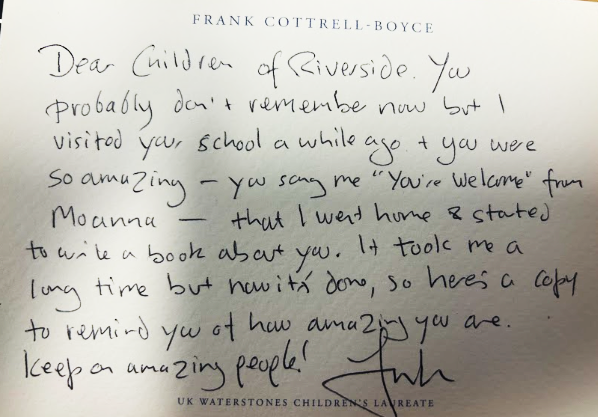 FRANK COTTRELL-BOYCE
Dear Children of Riverside. You
probably don't remember now but I
visited your school a while ago + you were
so amazing – you sang me "You're Welcome" from
Moanna – that I went home & started
to write a book about you. It took me a
long time but now it's done, so here's a copy
to remind you of how amazing you are.
Keep on amazing people!
Frank
UK WATERSTONES CHILDREN'S LAUREATE